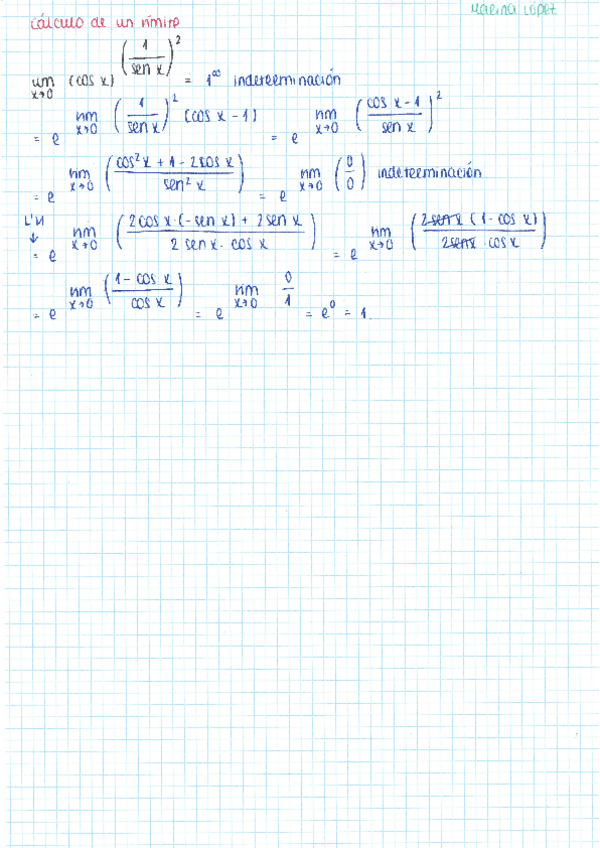 Marina López
Cálculo de un límite
lim x→0 (cos x)^(1/sen x)^2 = 1^∞ indeterminación
= e^ lim x→0 (1/sen x)^2 (cos x - 1) = e^ lim x→0 (cos x - 1/sen x)^2
= e^ lim x→0 (cos²x + 1 - 2cos x/sen² x) = e^ lim x→0 (0/0) indeterminación
L'H
↓
= e^ lim x→0 (2cos x·(-sen x) + 2sen x/2 sen x · cos x) = e^ lim x→0 (2sen x (1 - cos x)/2sen x · cos x)
= e^ lim x→0 (1 - cos x/cos x) = e^ lim x→0 0/1 = e^0 = 1